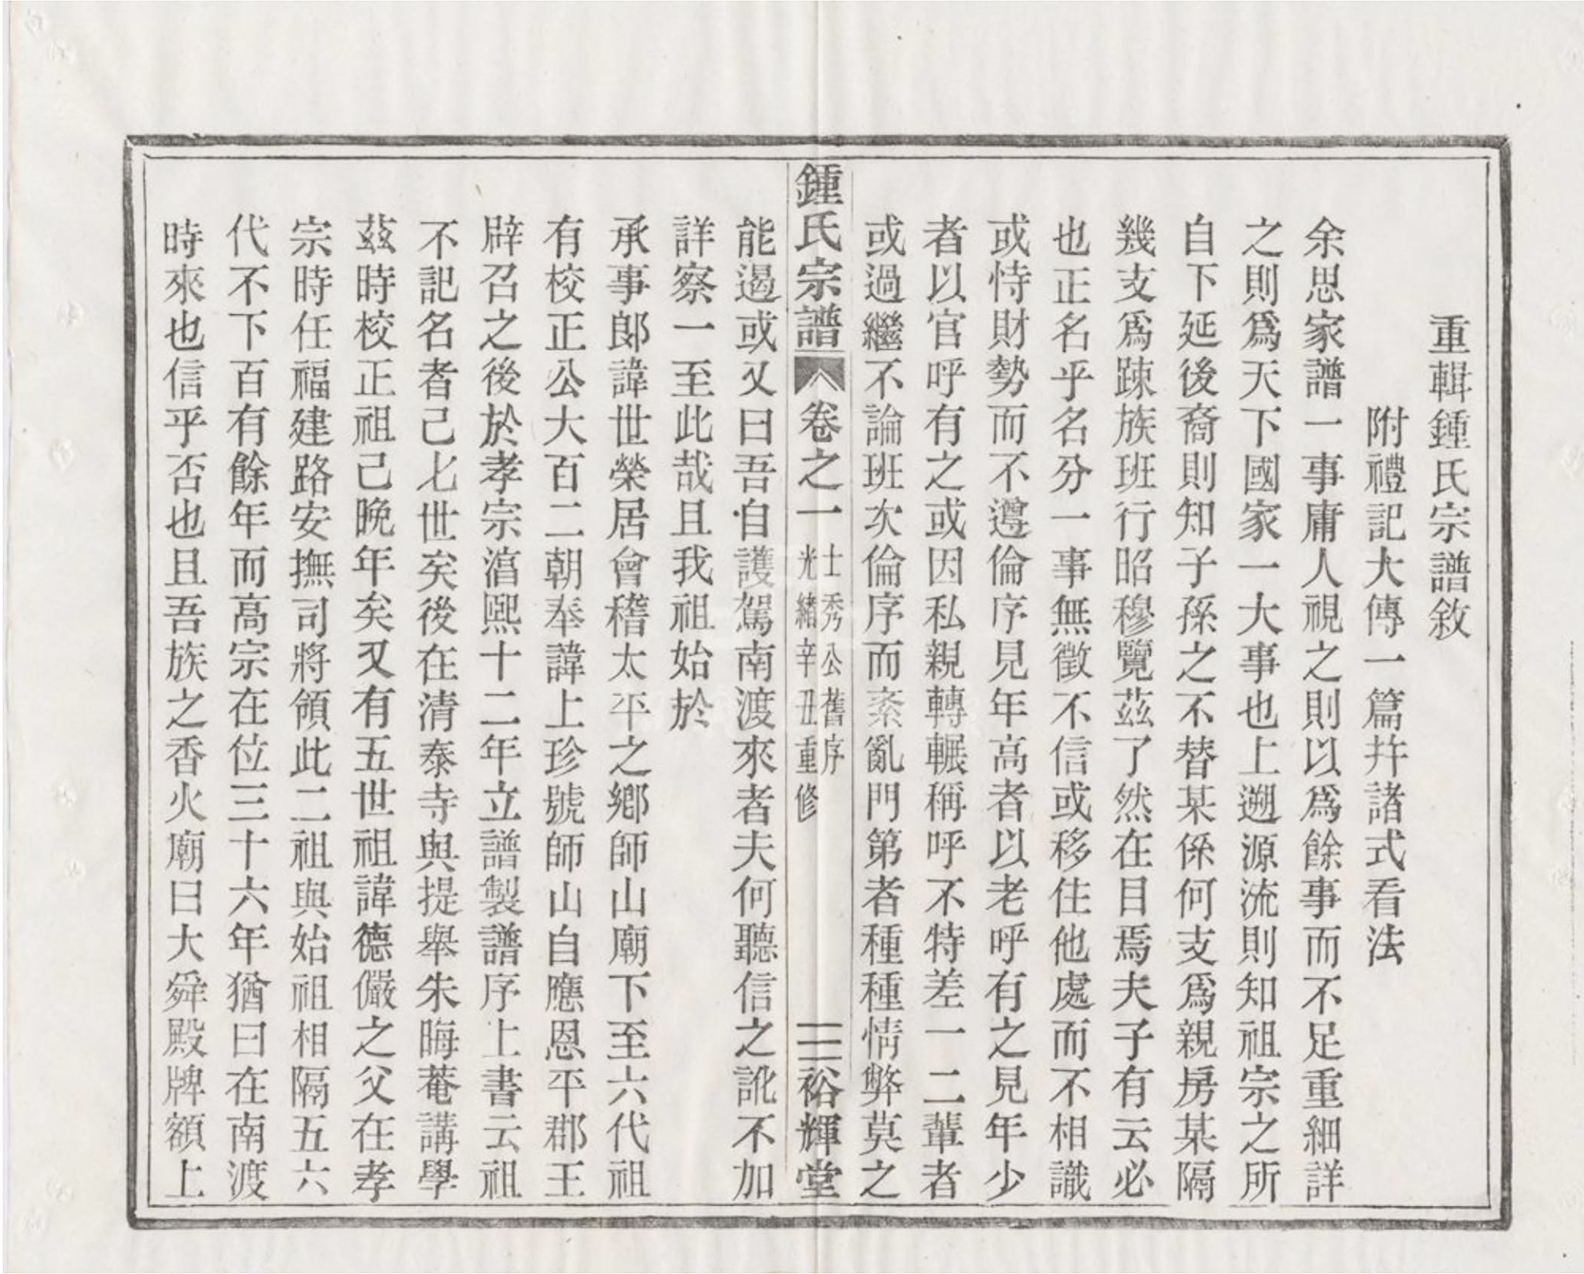 重輯鍾氏宗譜敘
附禮記大傳一篇幷諸式看法
余思家譜一事庸人視之則以爲餘事而不足重細詳
之則爲天下國家一大事也上遡源流則知祖宗之所
自下延後裔則知子孫之不替某係何支爲親房某隔
幾支爲踈族班行昭穆覽茲了然在目焉夫子有云必
也正名乎名分一事無徵不信或移住他處而不相識
或恃財勢而不遵倫序見年高者以老呼有之見年少
者以官呼有之或因私親轉輾稱呼不特差一二輩者
或過繼不論班次倫序而紊亂門第者種種情弊莫之
鍾氏宗譜 卷之一 士秀公舊序 光緒辛丑重修 三 裕輝堂
能遏或又曰吾自護駕南渡來者夫何聽信之訛不加
詳察一至此哉且我祖始於
承事郞諱世榮居會稽太平之鄉師山廟下至六代祖
有校正公大百二朝奉諱上珍號師山白應恩平郡王
辟召之後於孝宗淳熙十二年立譜製譜序上書云祖
不記名者己七世矣後在清泰寺與提舉朱晦菴講學
茲時校正祖己晚年矣又有五世祖諱德儼之父在孝
宗時任福建路安撫司將領此二祖與始祖相隔五六
代不下百有餘年而高宗在位三十六年猶曰在南渡
時來也信乎否也且吾族之香火廟曰大舜殿牌額上